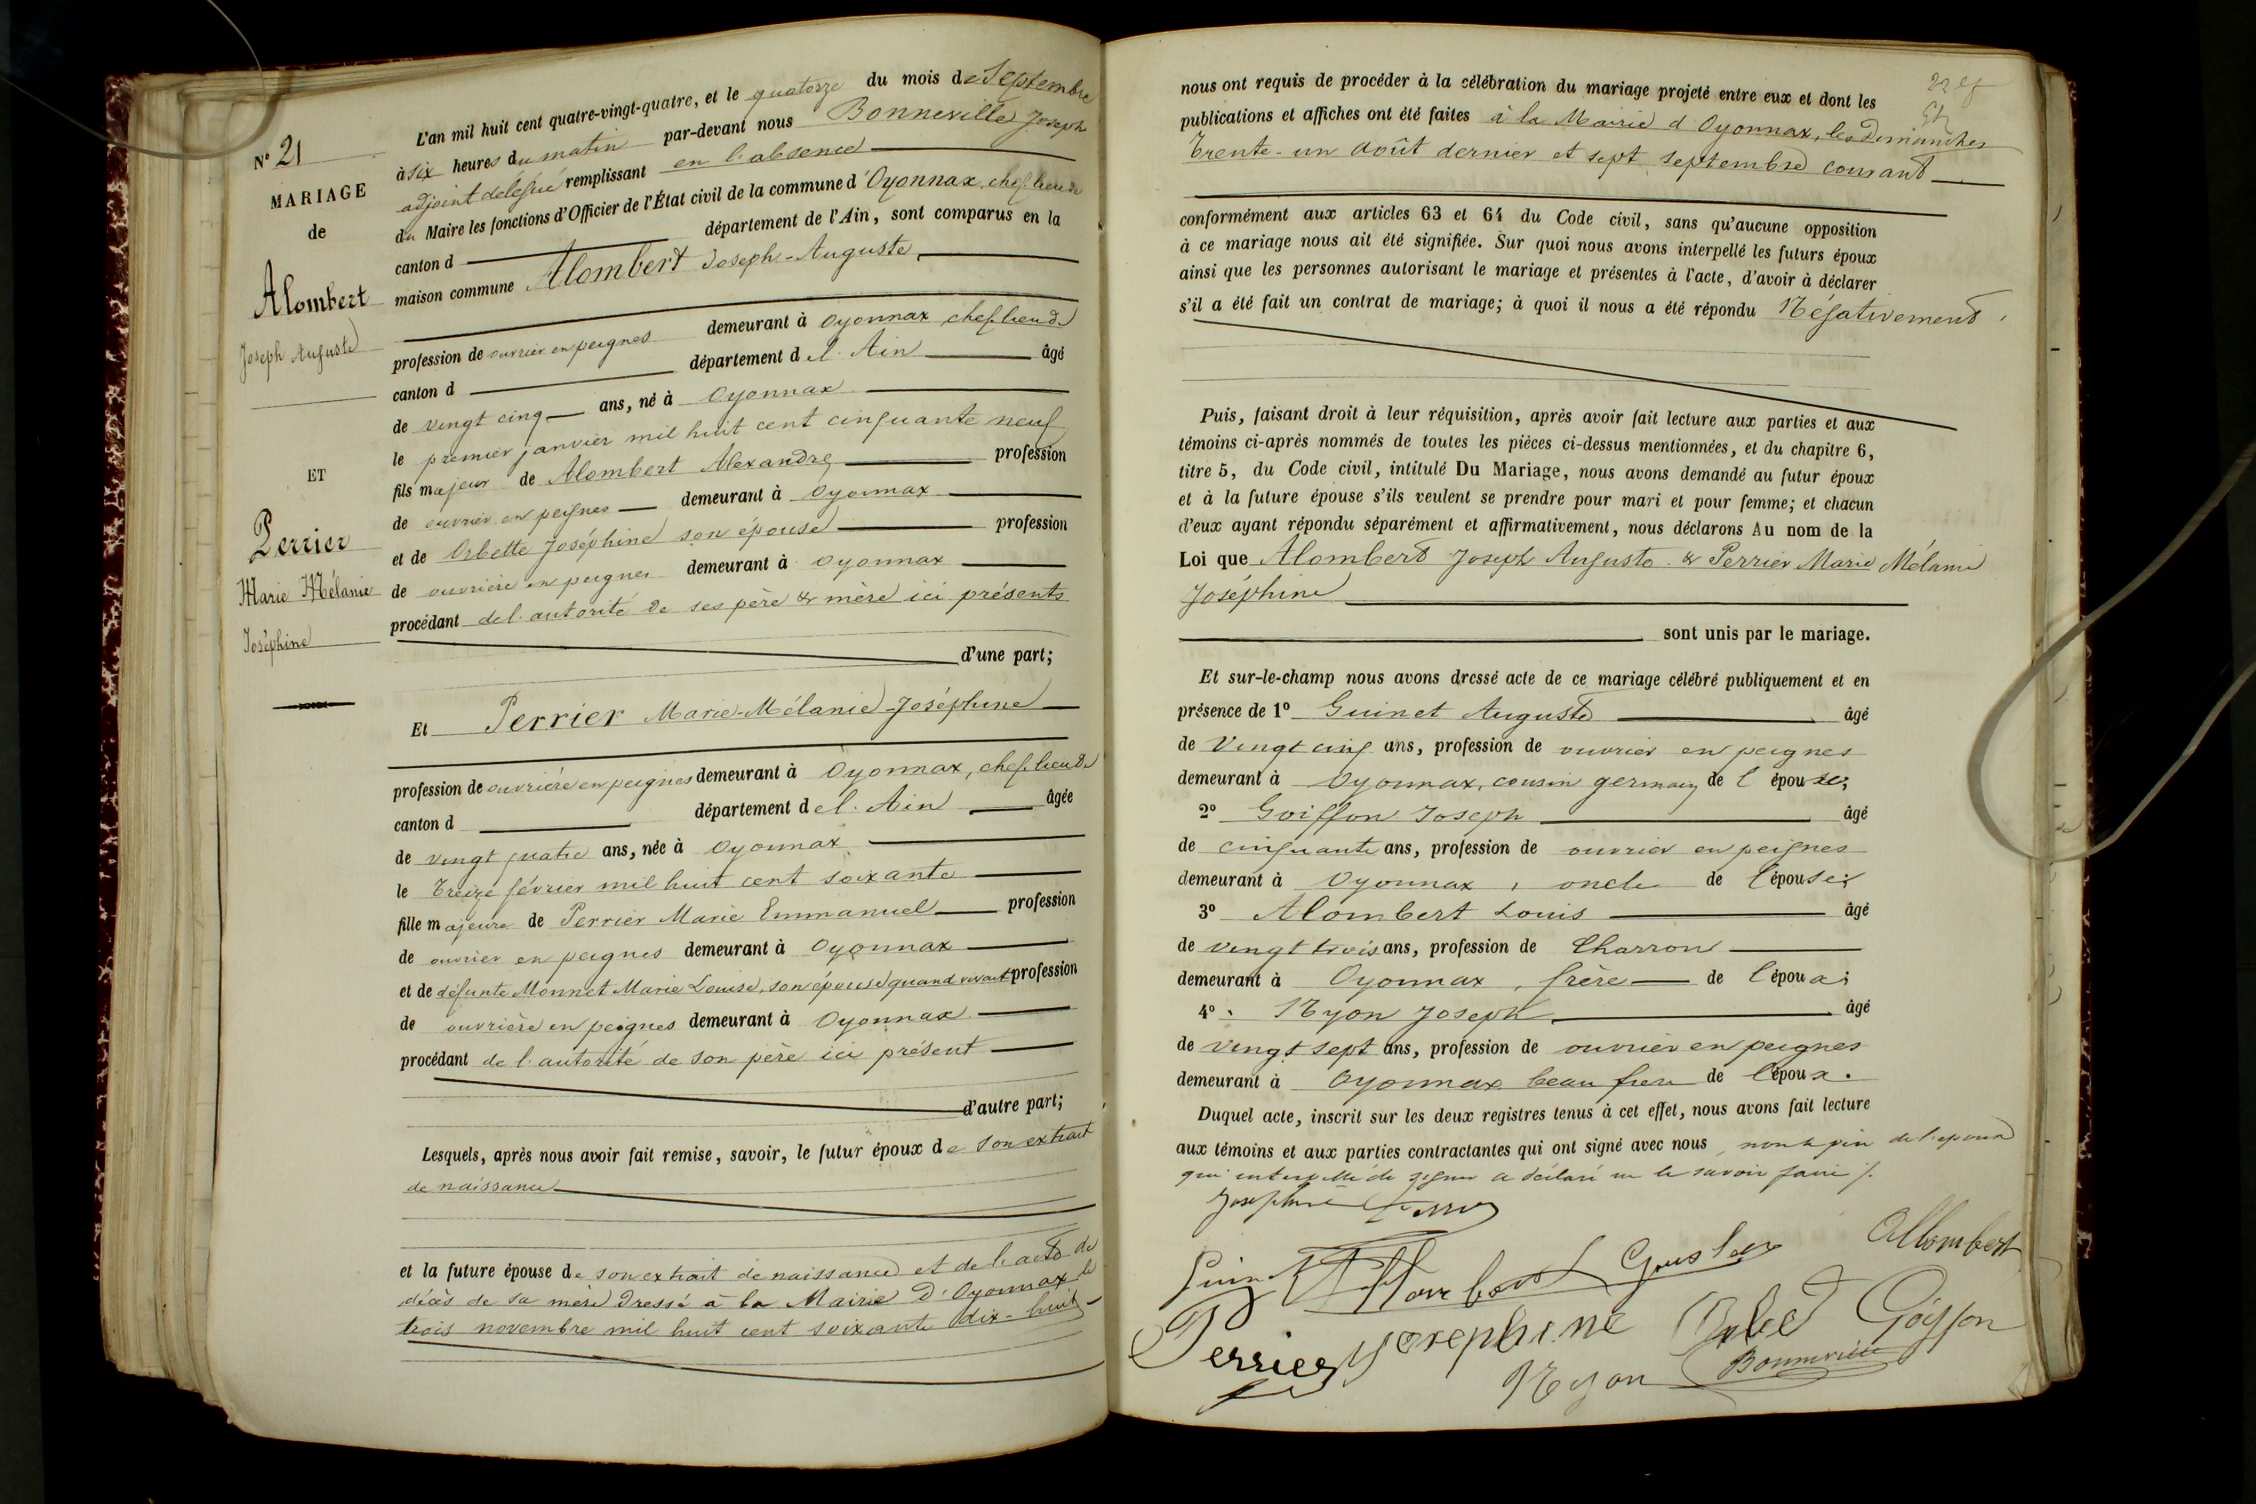 L'an mil huit cent quatre-vingt-quatre, et le quatorze du mois de Septembre
N° 21
à six heures du matin par-devant nous Bonneville Joseph
adjoint délégué remplissant en l'absence
MARIAGE
du Maire les fonctions d'Officier de l'État civil de la commune d'Oyonnax, chef lieu de
de
canton d département de l'Ain, sont comparus en la
Alombert
maison commune Alombert Joseph-Auguste,
Joseph Auguste
profession de ouvrier en peignes demeurant à Oyonnax chef lieu de
canton d département de l'Ain âgé
de vingt cinq ans, né à Oyonnax
le premier janvier mil huit cent cinquante neuf
ET
fils majeur de Alombert Alexandre profession
de ouvrier en peignes demeurant à Oyonnax
Perrier
et de Orbette Joséphine son épouse profession
Marie Mélanie
de ouvrière en peignes demeurant à Oyonnax
Joséphine
procédant de l'autorité de ses père & mère ici présents
d'une part;
Et Perrier Marie-Mélanie-Joséphine
profession de ouvrière en peignes demeurant à Oyonnax, chef lieu de
canton d département de l'Ain âgée
de vingt quatre ans, née à Oyonnax
le treize février mil huit cent soixante
fille majeure de Perrier Marie Emmanuel profession
de ouvrier en peignes demeurant à Oyonnax
et de défunte Monnet Marie Louise, son épouse quand vivait profession
de ouvrière en peignes demeurant à Oyonnax
procédant de l'autorité de son père ici présent
d'autre part;
Lesquels, après nous avoir fait remise, savoir, le futur époux de son extrait
de naissance
et la future épouse de son extrait de naissance et de l'acte de
décès de sa mère dressé à la Mairie d'Oyonnax le
trois novembre mil huit cent soixante dix-huit
nous ont requis de procéder à la célébration du mariage projeté entre eux et dont les
publications et affiches ont été faites à la Mairie d'Oyonnax, les Dimanches
trente-un Août dernier et sept septembre courant
conformément aux articles 63 et 64 du Code civil, sans qu'aucune opposition
à ce mariage nous ait été signifiée. Sur quoi nous avons interpellé les futurs époux
ainsi que les personnes autorisant le mariage et présentes à l'acte, d'avoir à déclarer
s'il a été fait un contrat de mariage; à quoi il nous a été répondu Négativement.
Puis, faisant droit à leur réquisition, après avoir fait lecture aux parties et aux
témoins ci-après nommés de toutes les pièces ci-dessus mentionnées, et du chapitre 6,
titre 5, du Code civil, intitulé Du Mariage, nous avons demandé au futur époux
et à la future épouse s'ils veulent se prendre pour mari et pour femme; et chacun
d'eux ayant répondu séparément et affirmativement, nous déclarons Au nom de la
Loi que Alombert Joseph Auguste & Perrier Marie Mélanie
Joséphine
sont unis par le mariage.
Et sur-le-champ nous avons dressé acte de ce mariage célébré publiquement et en
présence de 1° Guinet Auguste âgé
de vingt cinq ans, profession de ouvrier en peignes
demeurant à Oyonnax, cousin germain de l'épouse;
2° Goiffon Joseph âgé
de cinquante ans, profession de ouvrier en peignes
demeurant à Oyonnax, oncle de l'épouse;
3° Alombert Louis âgé
de vingt trois ans, profession de Charron
demeurant à Oyonnax, frère de l'époux;
4° Nyon Joseph âgé
de vingt sept ans, profession de ouvrier en peignes
demeurant à Oyonnax beau frère de l'époux.
Duquel acte, inscrit sur les deux registres tenus à cet effet, nous avons fait lecture
aux témoins et aux parties contractantes qui ont signé avec nous, non le père de l'époux
qui interpellé de signer a déclaré ne le savoir faire /.
Joséphine Perrier
Guinet Allombert Allombert
Perrier Josephine Orbet Goiffon
Nyon Bonneville